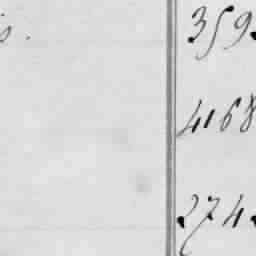 s.
359
4168
274